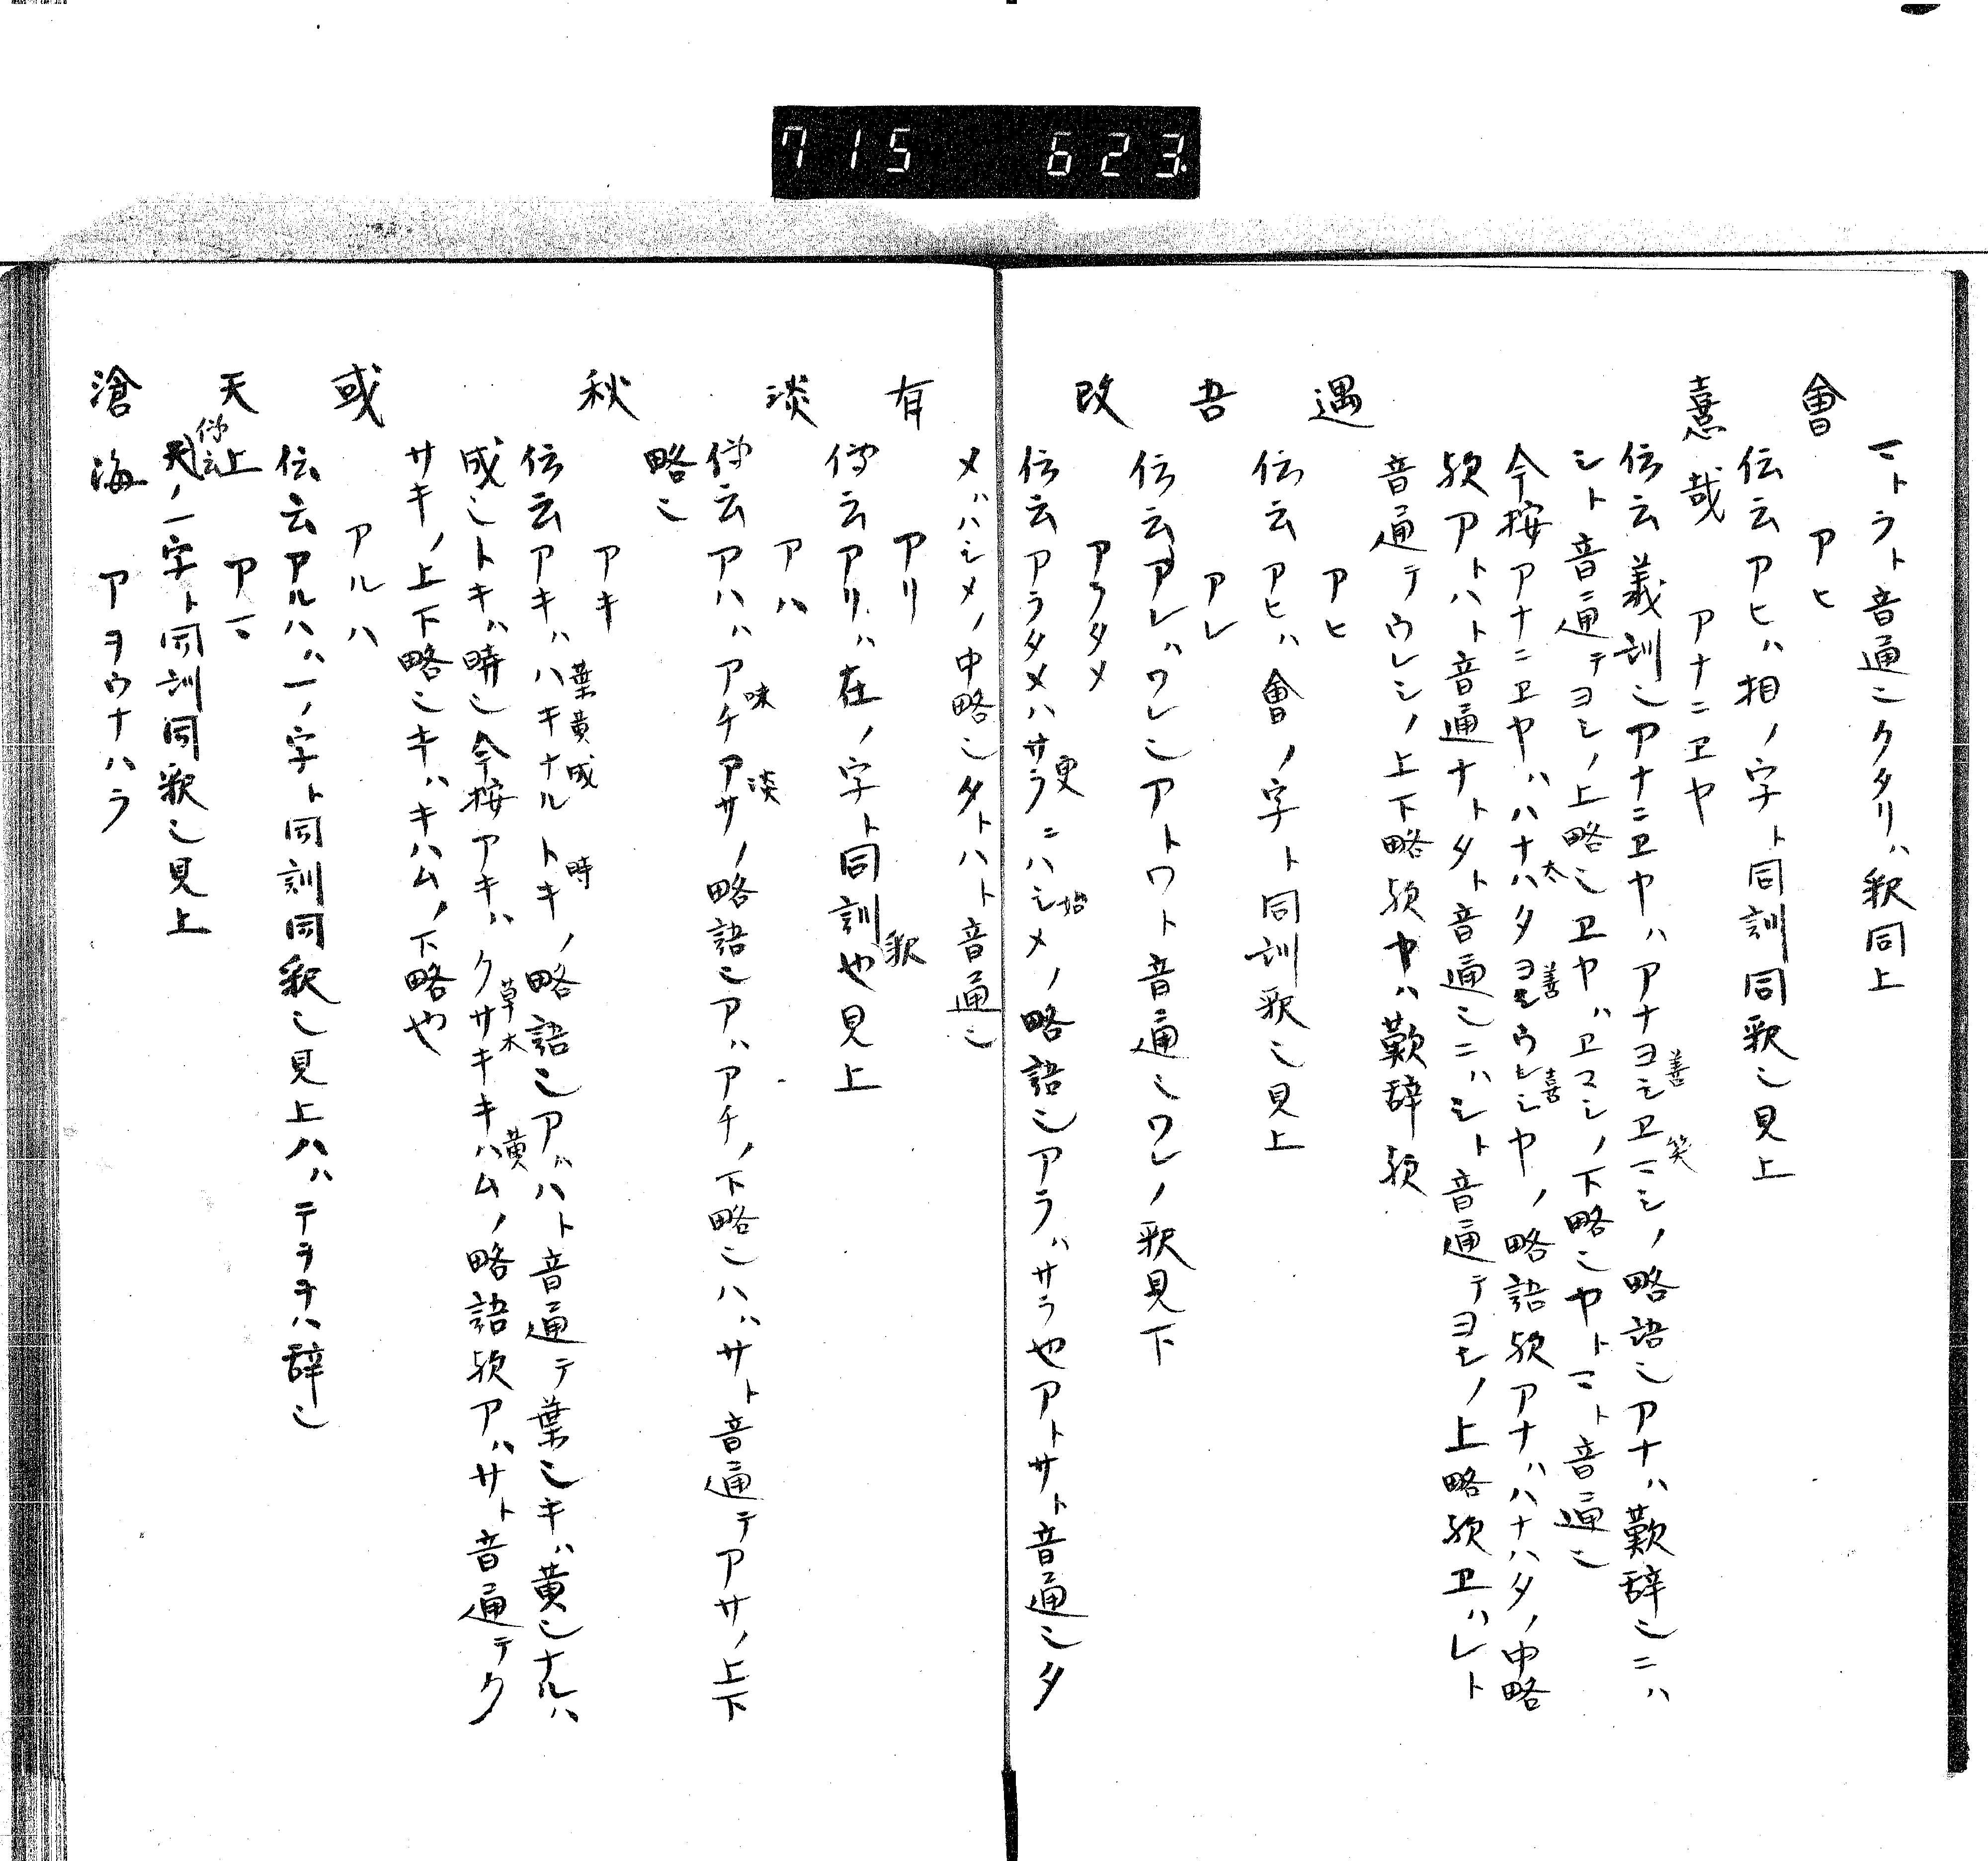 715 623
マトラト音通ニクタリハ釈同上
會 アヒ
伝云アヒハ相ノ字ト同訓同釈也見上
憙哉 アナニヱヤ
伝云義訓也アナニヱヤハアナヨシヱマシノ略語也アナハ歎辞也ニハ
善 笑
シト音通テヨシノ上略也ヱヤハヱマシノ下略也ヤトマト音通也
今按アナニヱヤハハナハタヨシウレシヤノ略語欤アナハハナハタノ中略
太 善 喜
欤アトハト音通ナトタト音通也ニハシト音通テヨシノ上略欤ヱハレト
音通テウレシノ上下略欤ヤハ歎辞欤
遇 アヒ
伝云アヒハ會ノ字ト同訓釈也見上
吾 アレ
伝云アレハワレ也アトワト音通也ワレノ釈見下
改 アラタメ
伝云アラタメハサラニハシメノ略語也アラハサラ也アトサト音通也タ
更 始
メハハシメノ中略也タトハト音通也
有 アリ
傳云アリハ在ノ字ト同訓釈也見上
淡 アハ
傳云アハハアチアサノ略語也アハアチノ下略也ハハサト音通テアサノ上下
味 淡
略也
秋 アキ
伝云アキハハキナルトキノ略語也アハハト音通テ葉也キハ黄也ナルハ
葉黄成 時
成也トキハ時也今按アキハクサキキハムノ略語欤アハサト音通テク
草木 黄
サキノ上下略也キハキハムノ下略也
或 アルハ
伝云アルハハ一ノ字ト同訓同釈也見上ハハテヲヲハ辞也
天上 アマ
傳云天ノ一字ト同訓同釈也見上
滄海 アヲウナハラ